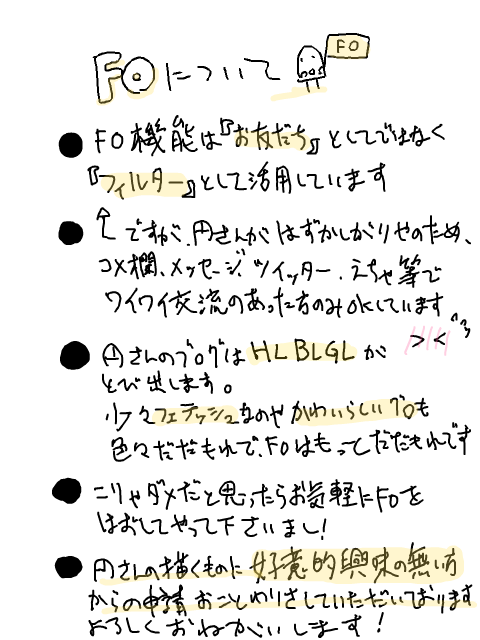 FOについて
FO
● FO機能は『お友だち』としてではなく
『フィルター』として活用しています
● ↑ですが、円さんがはずかしがりやのため、
コメ欄、メッセージ、ツイッター、えちゃ等で
ワイワイ交流のあった方のみOKしています
● 円さんのブログはHLBLGLが
とび出します。
少々フェティッシュなのやかわいらしいグロも
色々だだもれで、FOはもっとだだもれです
● こりゃダメだと思ったらお気軽にFOを
はずしてやって下さいまし!
● 円さんの描くものに好意的興味の無い方
からの申請おことわりさせていただいております
よろしくおねがいします!